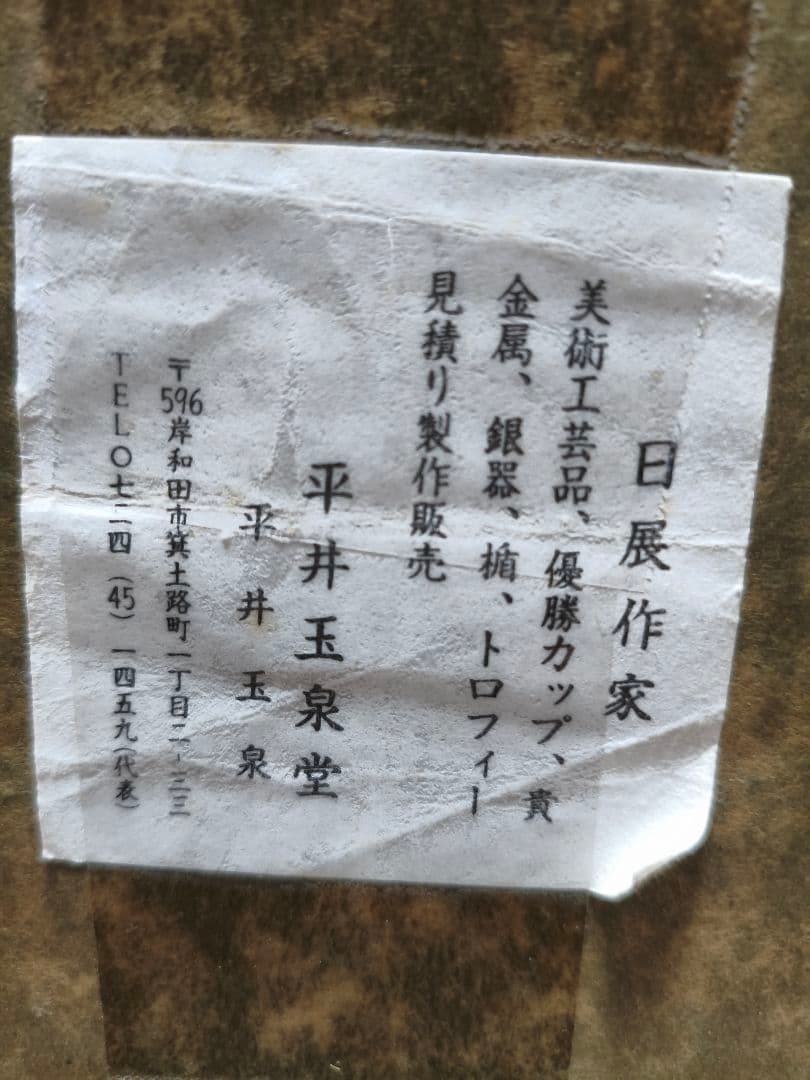 日展作家
美術工芸品、優勝カップ、貴
金属、銀器、楯、トロフィー
見積り製作販売
平井玉泉堂
平井玉泉
〒596岸和田市箕土路町一丁目二-三三
TEL〇七二四(45)一四五九(代表)